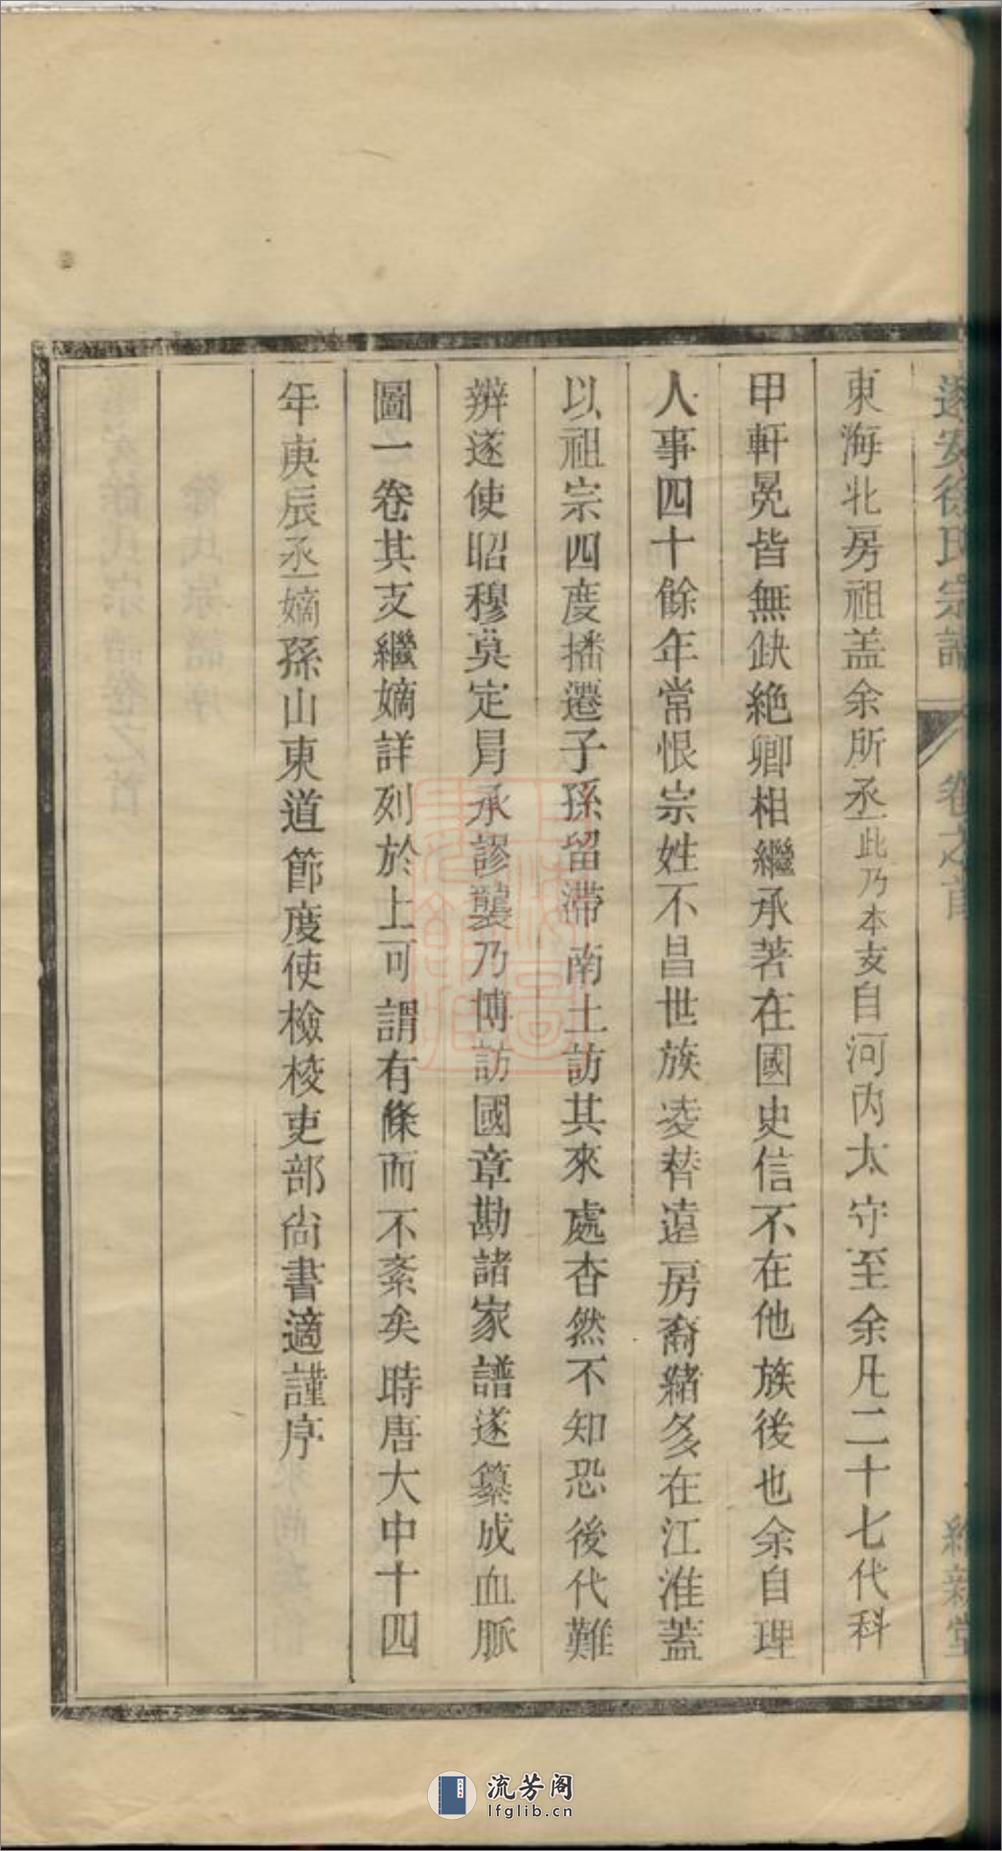 遂安徐氏宗譜 卷之首 維新堂
東海北房祖盖余所丞此乃本支自河內太守至余凡二十七代科
甲軒冕皆無缺絶卿相繼承著在國史信不在他族後也余自理
人事四十餘年常恨宗姓不昌世族凌替遠房裔緒多在江淮蓋
以祖宗四度播遷子孫留滯南土訪其來處杳然不知恐後代難
辨遂使昭穆莫定冐承謬襲乃博訪國章勘諸家譜遂纂成血脈
圖一卷其支繼嫡詳列於上可謂有條而不紊矣時唐大中十四
年庚辰丞嫡孫山東道節度使檢校吏部尚書適謹序
流芳阁
lfglib.cn